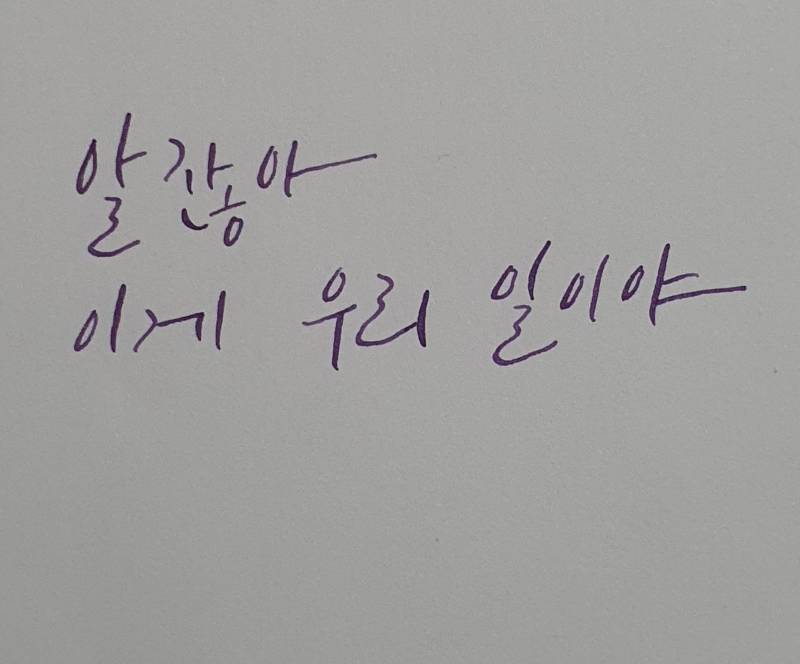 알잖아
이게 우리 일이야